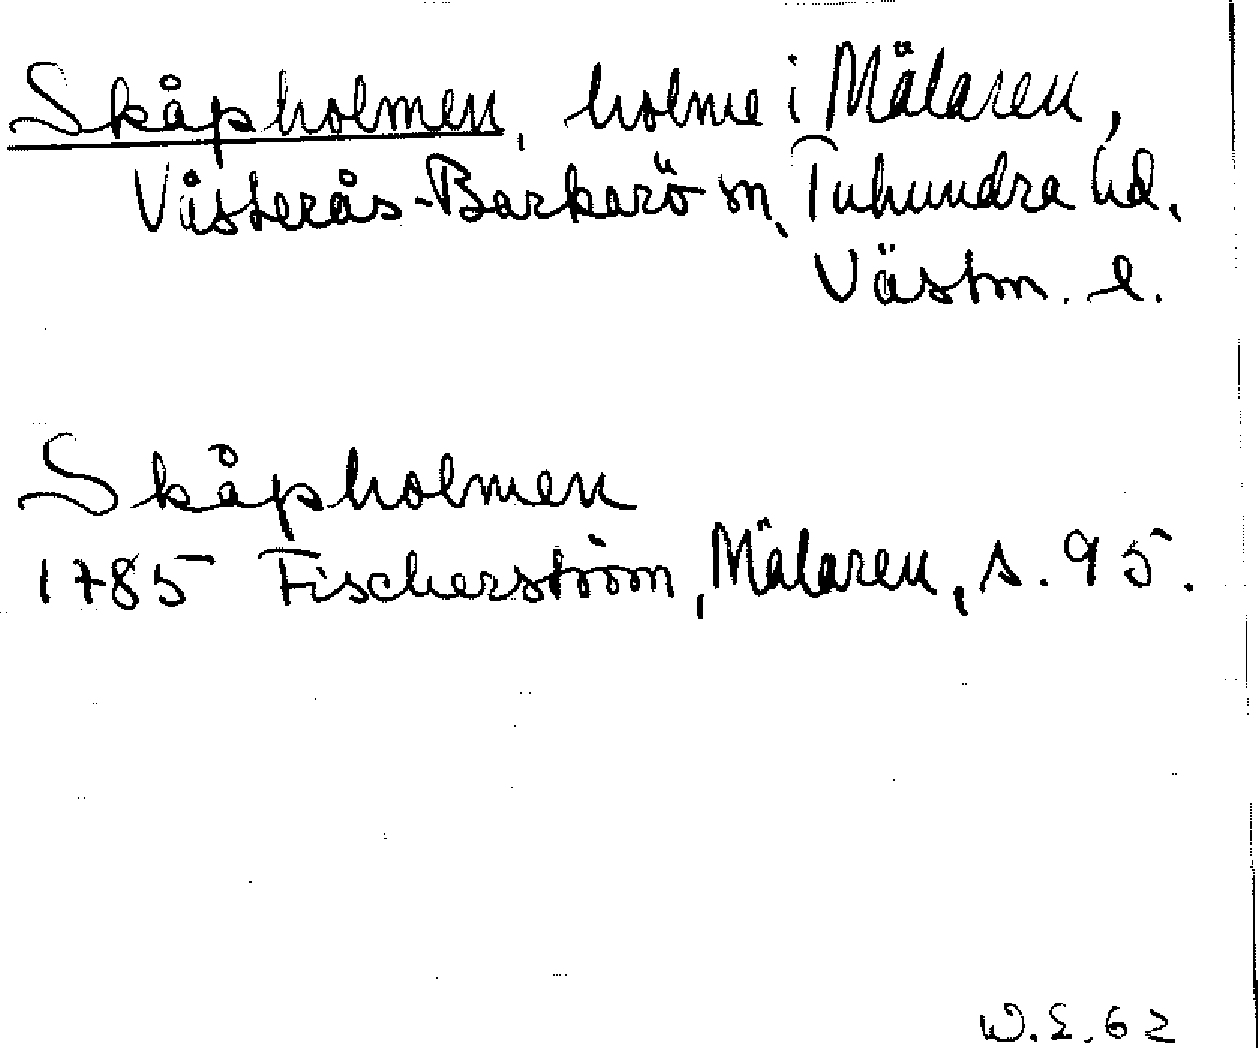 Skåpholmen, holme i Mälaren,
Västerås-Barkarö sn, Tuhundra hd.
Västm. l.
Skåpholmen
1785 Fischerström, Mälaren, s. 95.
W.E. 62